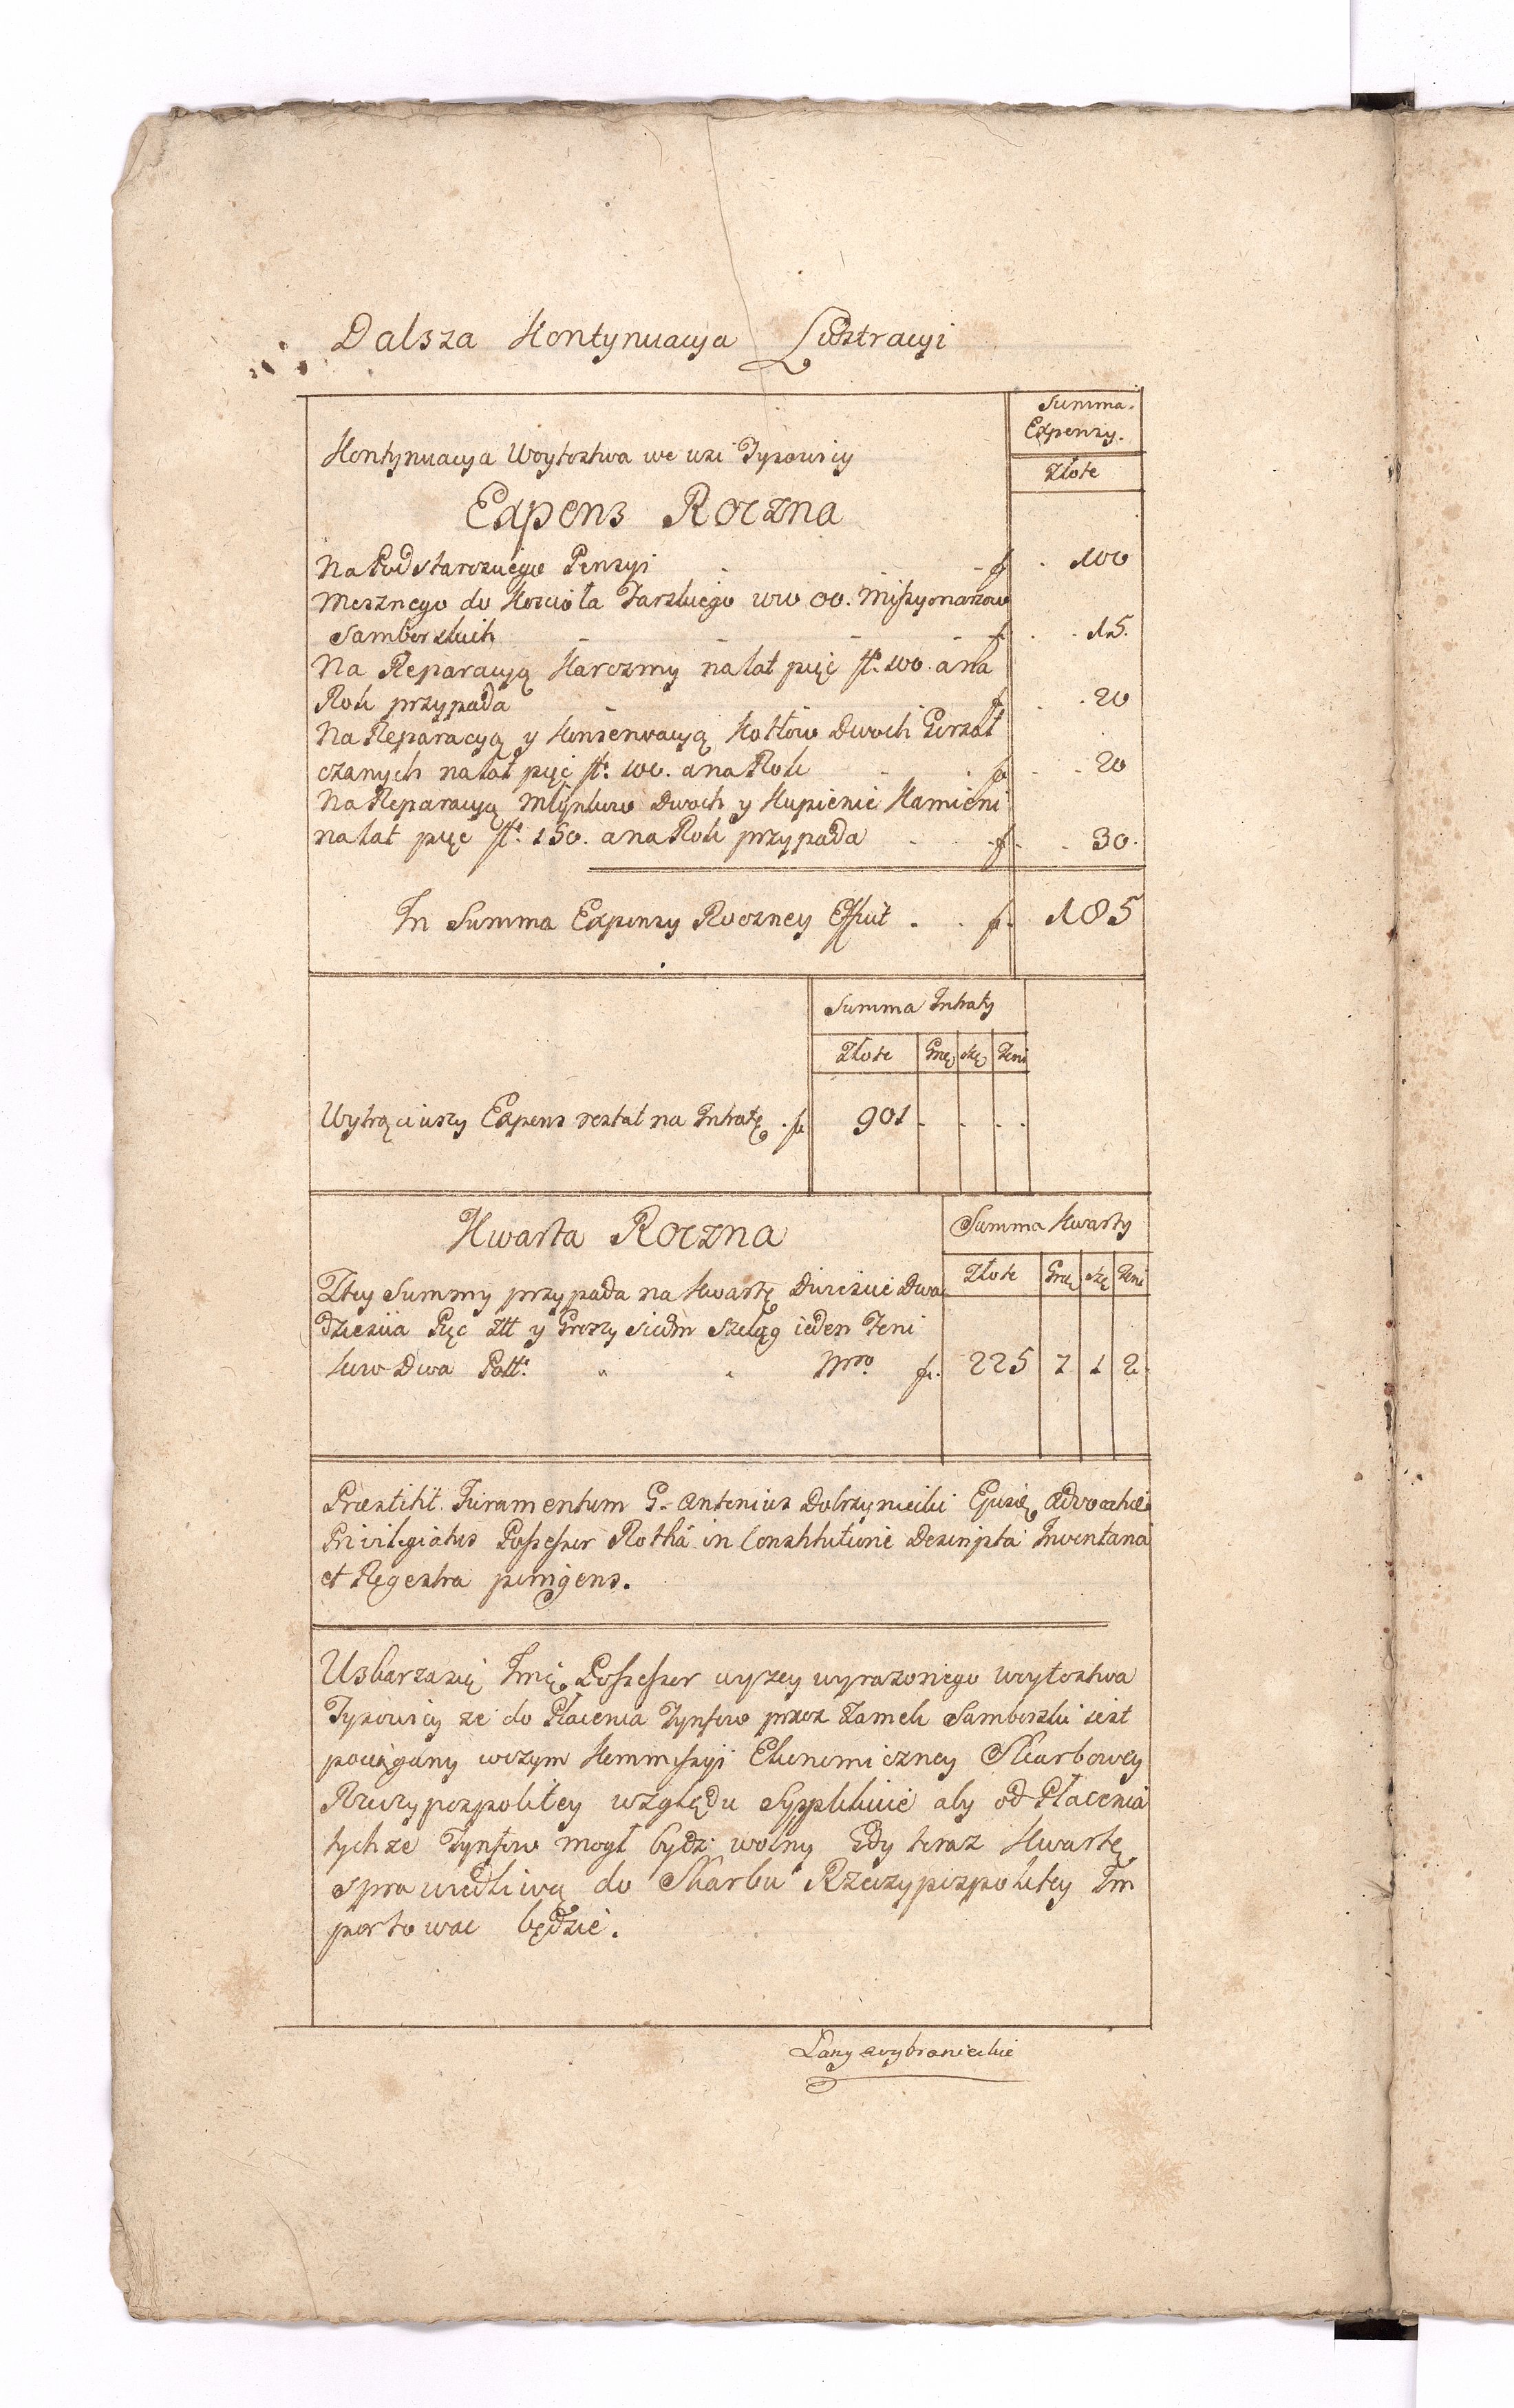 Dalsza Kontynuacya Lustracyi
Summa
Expensy.
Kontynuacya Woytostwa we wsi Tysowicy
Złote
Expens Roczna
Na Podstarosciego Pensyi f. 100
Mesznego do Koscioła Farskiego WW OO. Missyonarzow
Samborskich f. 15.
Na Reparacyą Karczmy na lat pięć ft. 100. a na
Rok przypada f. 20
Na Reparacyą y Konserwacyą Kotłow Dwoch Gorzał
czanych na lat pięć ft. 100. a na Rok f. 20
Na Reparacyą Młynkow Dwoch y Kupienie Kamieni
na lat pięc ft. 150. a na Rok przypada f. 30.
In Summa Expensy Roczney Efficit f. 185
Summa Intraty
Złote Grę Szę Feni
Wytrąciwszy Expens restat na Intratę f. 901
Kwarta Roczna
Summa Kwarty
Złote Grę Szę Feni
Z tey Summy przypada na Kwartę Dwiescie Dwa
dziescia Pięc Złł y Groszy siedm Szeląg ieden Feni
kow Dwa Poll. Nro. f. 225 7 1 2.
Præstitit Juramentum G. Antonius Dobrzyniecki Advocatiæ
Privilegiatus Possessor Rotha in Constitutione Descripta Inventaria
et Regestra porrigens.
Uskarza się Imę Possessor wyzey wyrazonego woytostwa
Tysowicy ze do Płacenia Tynfow przez Zamek Samborski iest
pociągany wczym Kommissyi Ekonomiczney Skarbowey
Rzeczypospolitey względu Supplikuie aby od Płacenia
tychze Tynfow mogł bydz wolny Gdy teraz Kwartę
sprawiedliwą do Skarbu Rzeczypospolitey Im
portowac będzie.
Łany wybranieckie